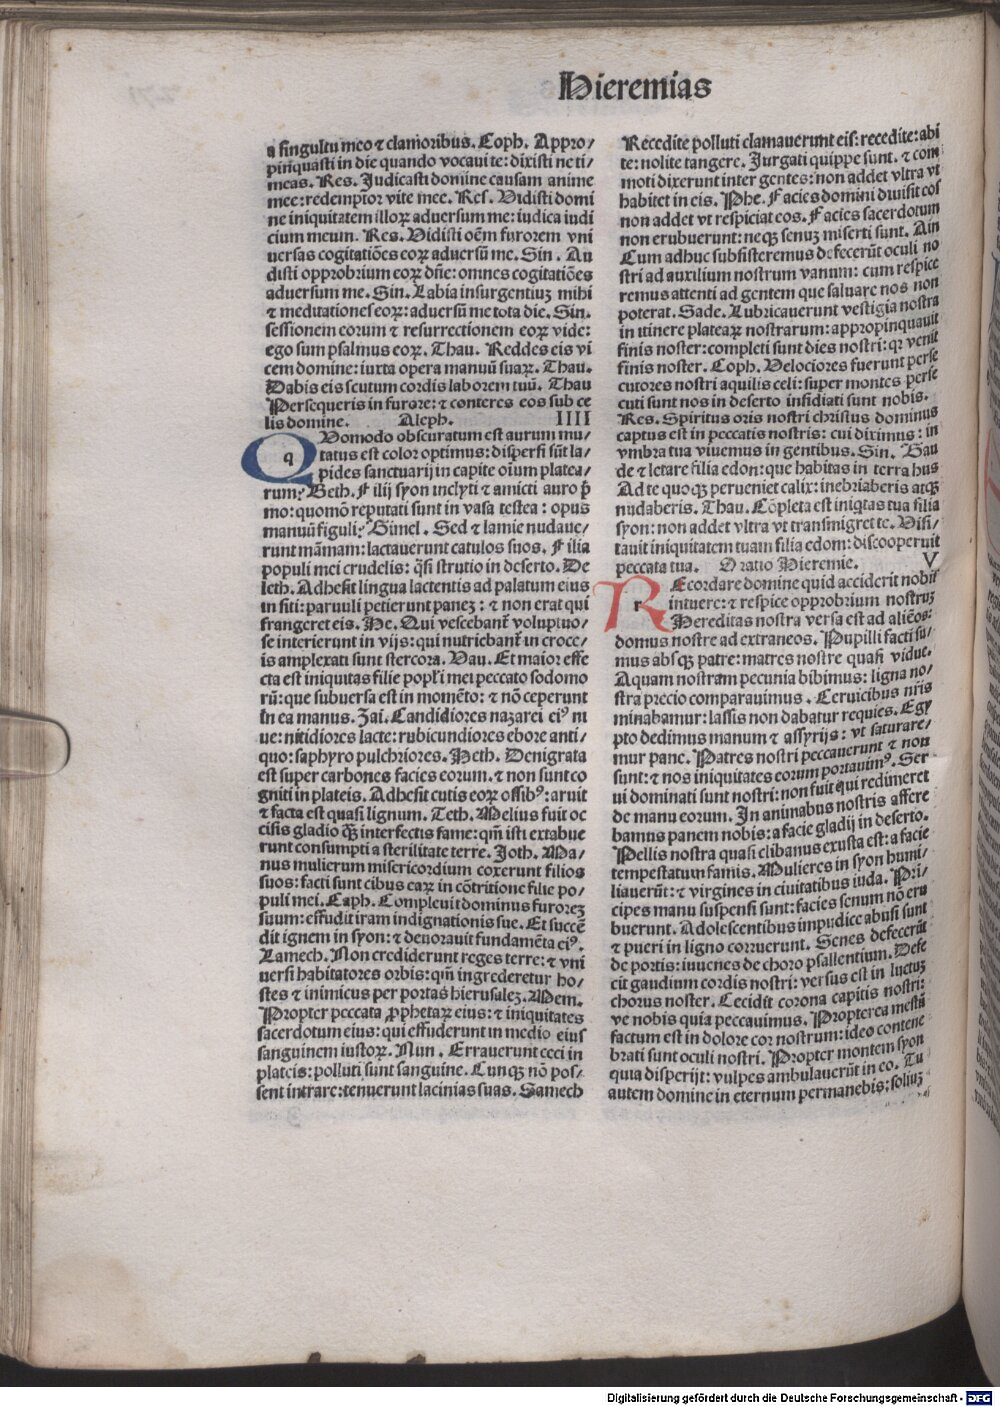 Hieremias
a singultu meo ⁊ clamoribus. Coph. Appro/
pinquasti in die quando vocaui te: dixisti ne ti/
meas. Res. Judicasti domine causam anime
mee: redemptor vite mee. Res. Vidisti domi
ne iniquitatem illoꝝ aduersum me: iudica iudi
cium meum. Res. Vidisti oēm furorem vni
uersas cogitatiōes eoꝝ aduersū me. Sin. Au
disti opprobrium eoꝝ dñe: omnes cogitatiōes
aduersum me. Sin. Labia insurgentiuꝫ mihi
⁊ meditationes eoꝝ: aduersū me tota die. Sin.
sessionem eorum ⁊ resurrectionem eoꝝ vide:
ego sum psalmus eoꝝ. Thau. Reddes eis vi
cem domine: iuxta opera manuū suaꝝ. Thau.
Dabis eis scutum cordis laborem tuū. Thau
Persequeris in furore: ⁊ conteres eos sub ce
lis domine. Aleph. IIII
Q q Uomodo obscuratum est aurum mu/
tatus est color optimus: dispersi sūt la/
pides sanctuarij in capite oīum platea/
rum? Beth. Filij syon inclyti ⁊ amicti auro p̄
mo: quomō reputati sunt in vasa testea: opus
manuū figuli? Gimel. Sed ⁊ lamie nudaue/
runt māmam: lactauerunt catulos suos. Filia
populi mei crudelis: q̄si strutio in deserto. De
leth. Adhesit lingua lactentis ad palatum eius
in siti: paruuli petierunt paneꝫ: ⁊ non erat qui
frangeret eis. He. Qui vescebant̄ voluptuo/
se interierunt in vijs: qui nutriebant̄ in croce/
is amplexati sunt stercora. Vau. Et maior effe
cta est iniquitas filie popl̄i mei peccato sodomo
rū: que subuersa est in momēto: ⁊ nō ceperunt
in ea manus. Zai. Candidiores nazarei eiꝰ ni
ue: nitidiores lacte: rubicundiores ebore anti/
quo: saphyro pulchriores. Heth. Denigrata
est super carbones facies eorum. ⁊ non sunt co
gniti in plateis. Adhesit cutis eoꝝ ossibꝰ: aruit
⁊ facta est quasi lignum. Teth. Melius fuit oc
cisis gladio qꝫ̄ interfectis fame: qm̄ isti extabue
runt consumpti a sterilitate terre. Joth. Ma/
nus mulierum misericordium coxerunt filios
suos: facti sunt cibus eaꝝ in cōtritione filie po/
puli mei. Caph. Compleuit dominus furoreꝫ
suum: effudit iram indignationis sue. Et succē
dit ignem in syon: ⁊ deuorauit fundamēta eiꝰ.
Lamech. Non crediderunt reges terre: ⁊ vni
uersi habitatores orbis: qm̄ ingrederetur ho/
stes ⁊ inimicus per portas hierusaleꝫ. Mem.
Propter peccata ꝓphetaꝝ eius: ⁊ iniquitates
sacerdotum eius: qui effuderunt in medio eius
sanguinem iustoꝝ. Nun. Errauerunt ceci in
plateis: polluti sunt sanguine. Cunqꝫ nō pos/
sent intrare: tenuerunt lacinias suas. Samech
Recedite polluti clamauerunt eis: recedite: abi
te: nolite tangere. Jurgati quippe sunt. ⁊ com
moti dixerunt inter gentes: non addet vltra vt
habitet in eis. Phe. Facies domini diuisit eos
non addet vt respiciat eos. Facies sacerdotum
non erubuerunt: neqꝫ senuꝫ miserti sunt. Ain
Cum adhuc subsisteremus defecerūt oculi no
stri ad auxilium nostrum vanum: cum respice
remus attenti ad gentem que saluare nos non
poterat. Sade. Lubricauerunt vestigia nostra
in itinere plateaꝝ nostrarum: appropinquauit
finis noster: completi sunt dies nostri: qꝛ venit
finis noster. Coph. Velociores fuerunt perse
cutores nostri aquilis celi: super montes perse
cuti sunt nos in deserto insidiati sunt nobis.
Res. Spiritus oris nostri christus dominus
captus est in peccatis nostris: cui diximus: in
vmbra tua viuemus in gentibus. Sin. Gau
de ⁊ letare filia edon: que habitas in terra hus
Ad te quoqꝫ perueniet calix: inebriaberis atqꝫ
nudaberis. Thau. Cōpleta est iniqtas tua filia
syon: non addet vltra vt transmigret te. Visi/
tauit iniquitatem tuam filia edom: discooperuit
peccata tua. Oratio Hieremie. V
R r Ecordare domine quid acciderit nobis
intuere: ⁊ respice opprobrium nostruꝫ
Hereditas nostra versa est ad aliēos:
domus nostre ad extraneos. Pupilli facti su/
mus absqꝫ patre: matres nostre quasi vidue.
Aquam nostram pecunia bibimus: ligna no/
stra precio comparauimus. Ceruicibus nr̄is
minabamur: lassis non dabatur requies. Egy
pto dedimus manum ⁊ assyrijs: vt saturare/
mur pane. Patres nostri peccauerunt ⁊ non
sunt: ⁊ nos iniquitates eorum portauimꝰ. Ser
ui dominati sunt nostri: non fuit qui redimeret
de manu eorum. In animabus nostris affere
bamus panem nobis: a facie gladij in deserto.
Pellis nostra quasi clibanus exusta est: a facie
tempestatum famis. Mulieres in syon humi/
liauerūt: ⁊ virgines in ciuitatibus iuda. Pri/
cipes manu suspensi sunt: facies senum nō eru
buerunt. Adolescentibus impudice abusi sunt
⁊ pueri in ligno corruerunt. Senes defecerūt
de portis: iuuenes de choro psallentium. Defe
cit gaudium cordis nostri: versus est in luctuꝫ
chorus noster. Cecidit corona capitis nostri:
ve nobis quia peccauimus. Propterea mestū
factum est in dolore cor nostrum: ideo contene
brati sunt oculi nostri. Propter montem syon
quia disperijt: vulpes ambulauerūt in eo. Tu
autem domine in eternum permanebis: soliuꝫ
Digitalisierung gefördert durch die Deutsche Forschungsgemeinschaft - DFG